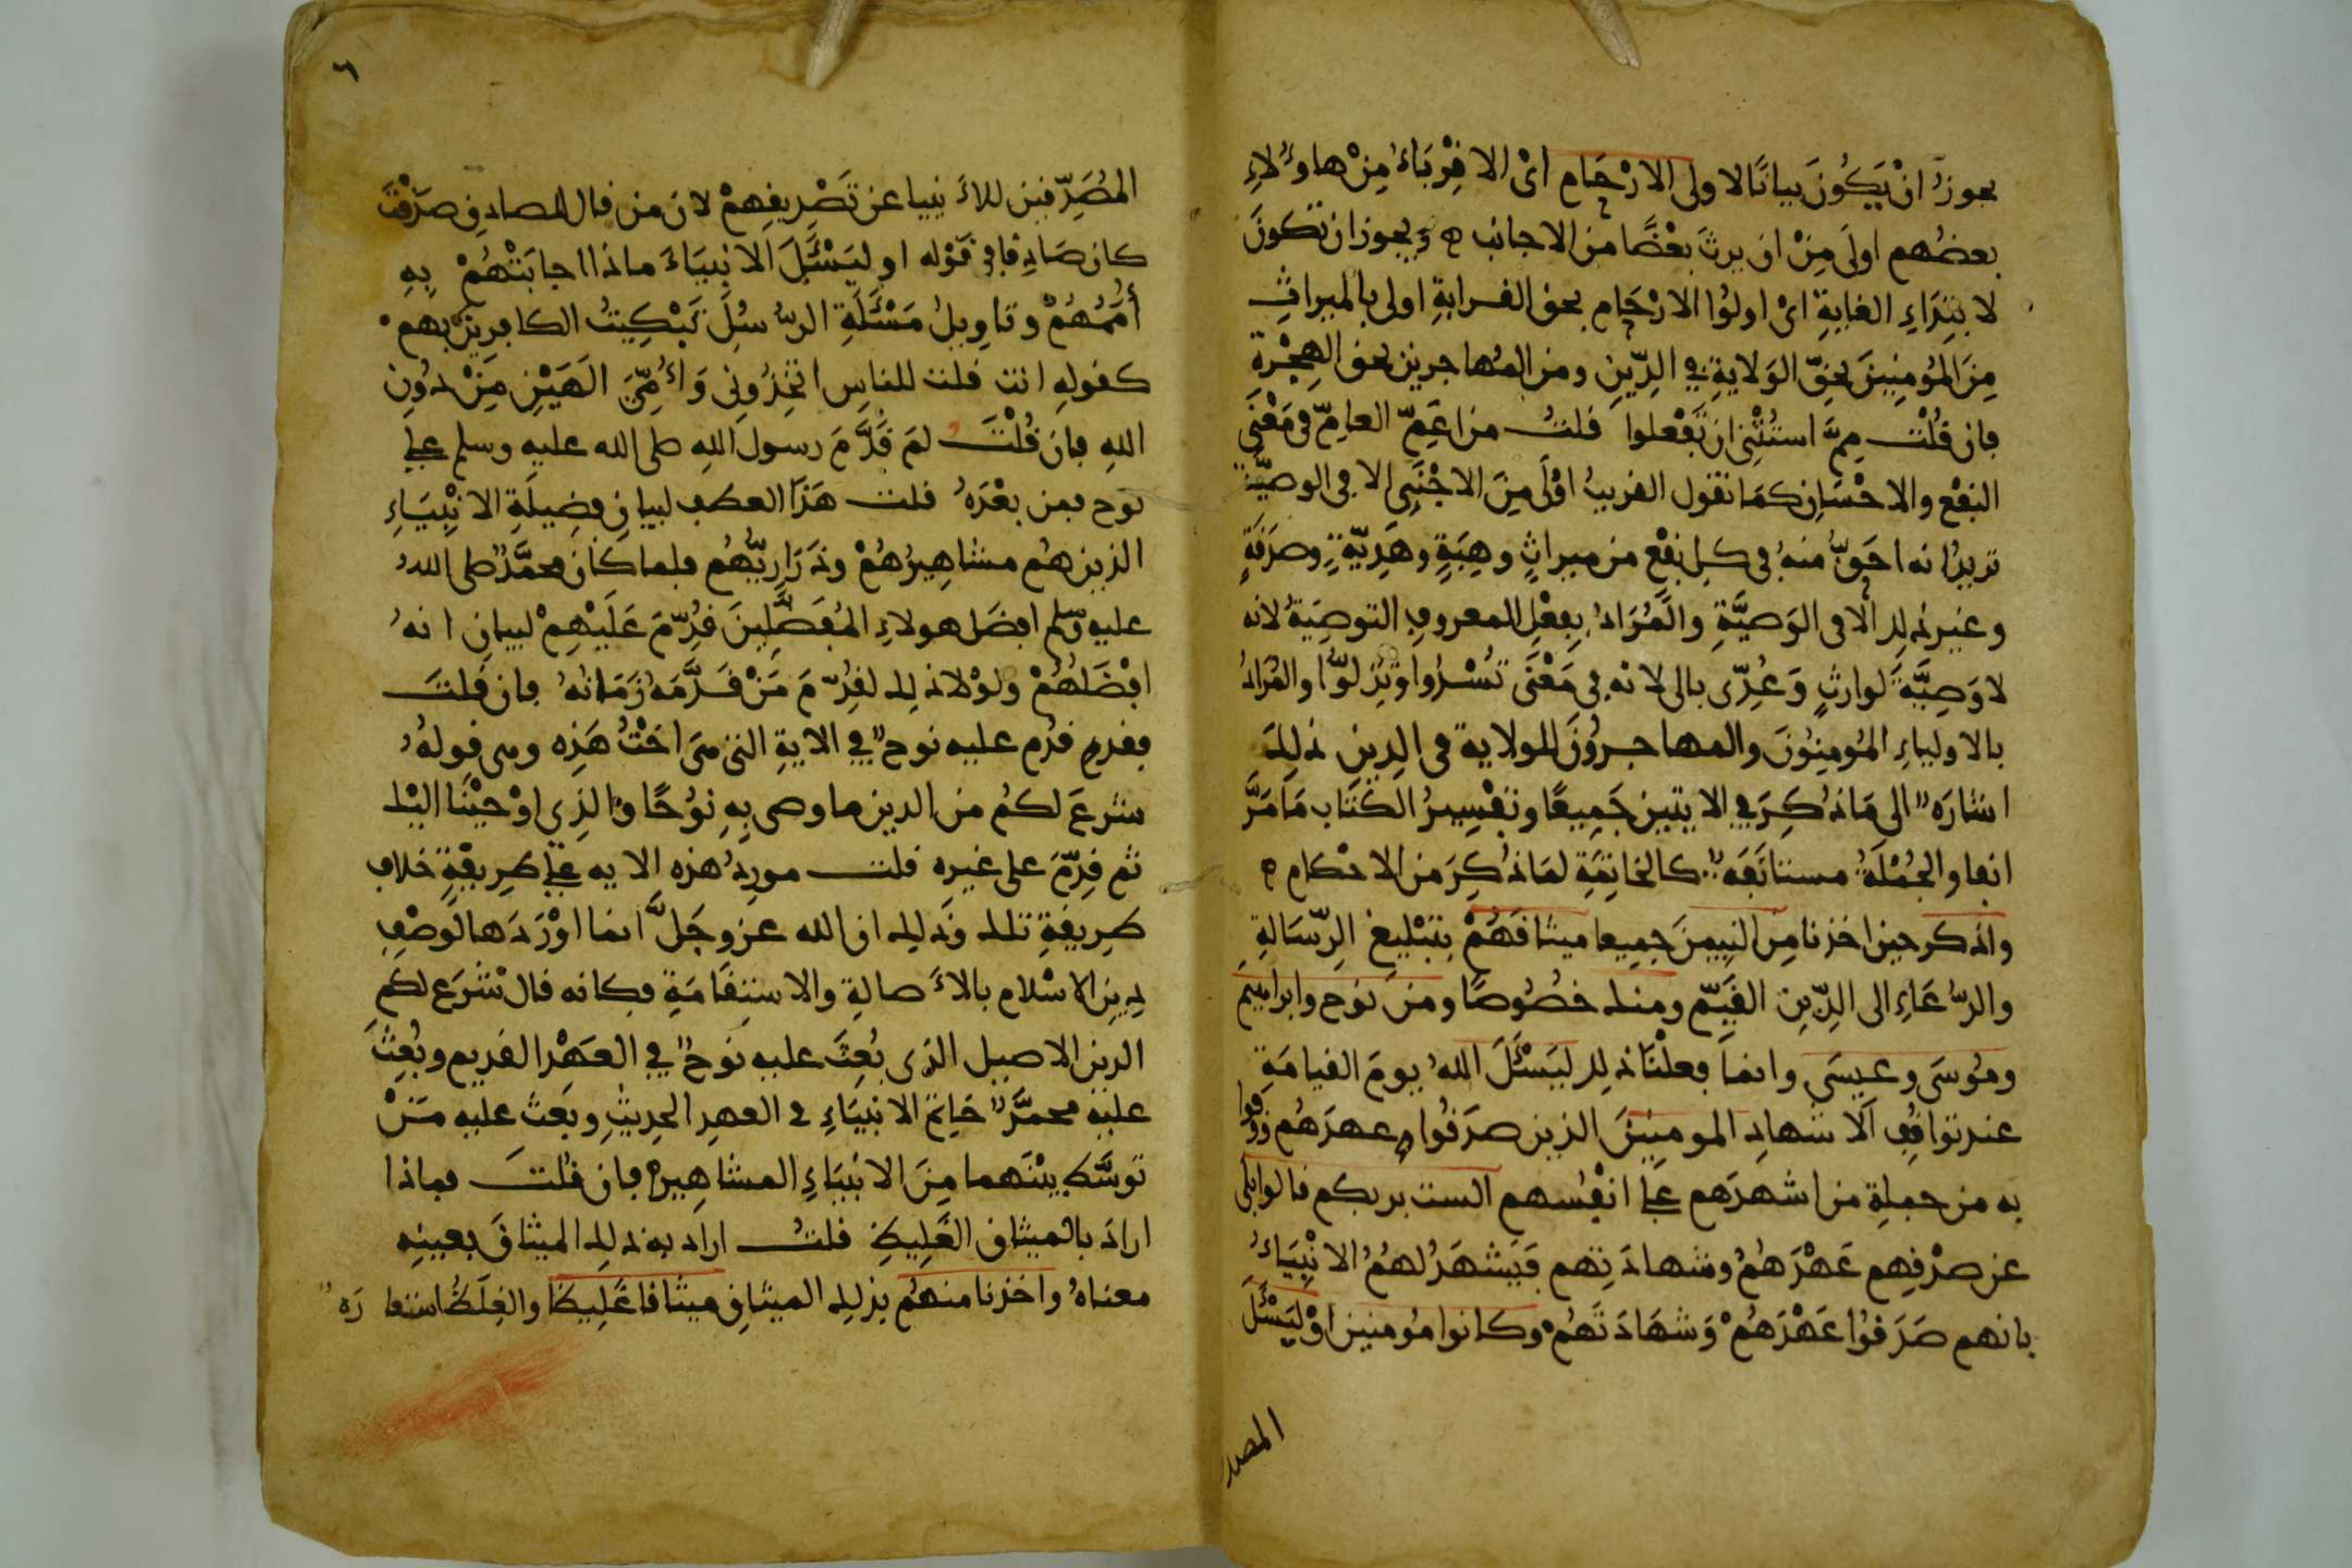 يجوز ان يكون بيانا لاولى الارحام اى الاقرباء من هاؤلاء
بعضهم اولى من ان يرث بعضا من الاجانب ه ويجوز ان تكون
لابتداء الغاية اى اولوا الارحام بحق القرابة اولى بالميراث
من المؤمنين بحق الولاية في الدين ومن المهاجرين بحق الهجرة
فان قلت مم استثنى ان تفعلوا قلت من اعم العام فى معنى
النفع والاحسان كما تقول القريب اولى من الاجنبى الا فى الوصية
تريد انه احق منه فى كل نفع من ميراث وهبة وهدية وصدقة
وغير ذلك الا فى الوصية والمراد بفعل المعروف التوصية لانه
لا وصية لوارث وعدى بالى لانه فى معنى تسدوا وتزلوا والمراد
بالاولياء المؤمنون والمهاجرون للولاية فى الدين ذلك
اشارة الى ما ذكر في الايتين جميعا وتفسير الكتاب ما مر
انفا والجملة مستانفة كالخاتمة لما ذكر من الاحكام ه
واذكر حين اخذنا من النبيين جميعا ميثاقهم بتبليغ الرسالة
والدعاء الى الدين القيم ومنك خصوصا ومن نوح وابراهيم
وموسى وعيسى وانما فعلنا ذلك ليسئل الله يوم القيامة
عند تواقف الاشهاد المومنين الذين صدقوا عهدهم ووفوا
به من جملة من اشهدهم على انفسهم الست بربكم قالوا بلى
عن صدقهم عهدهم وشهادتهم فيشهد لهم الانبياء
بانهم صدقوا عهدهم وشهادتهم وكانوا مؤمنين او ليسئل
المصد
٦
المصدقين للانبيا عن تصديقهم لان من قال للصادق صدقت
كان صادقا فى قوله او ليسئل الانبياء ماذا اجابتهم به
أممهم وتاويل مسئلة الرسل تبكيت الكافرين بهم
كقوله انت قلت للناس اتخذونى وأمى الهين من دون
الله فان قلت لم قدم رسول الله صلى الله عليه وسلم على
نوح فمن بعده قلت هذا العطف لبيان فضيلة الانبياء
الذين هم مشاهيرهم وذراريهم فلما كان محمد صلى الله
عليه وسلم افضل هولاء المفضلين قدم عليهم لبيان انه
افضلهم ولولا ذلك لقدم من قدمه زمانه فان قلت
فقدم قدم عليه نوح في الاية التى هى اخت هذه وهى قوله
شرع لكم من الدين ما وصى به نوحا والذي اوحينا اليك
ثم قدم على غيره قلت مورد هذه الايه على طريقة خلاف
طريقة تلك وذلك ان الله عز وجل انما اوردها لوصف
دين الاسلام بالاصالة والاستقامة فكانه قال شرع لكم
الدين الاصيل الذى بعث عليه نوح في العهد القديم وبعث
عليه محمد خاتم الانبياء في العهد الحديث وبعث عليه من
توسط بينهما من الانبياء المشاهير ه فان قلت فماذا
اراد بالميثاق الغليظ قلت اراد به ذلك الميثاق بعينه
معناه واخذنا منهم بذلك الميثاق ميثاقا غليظا والغلظ استعارة